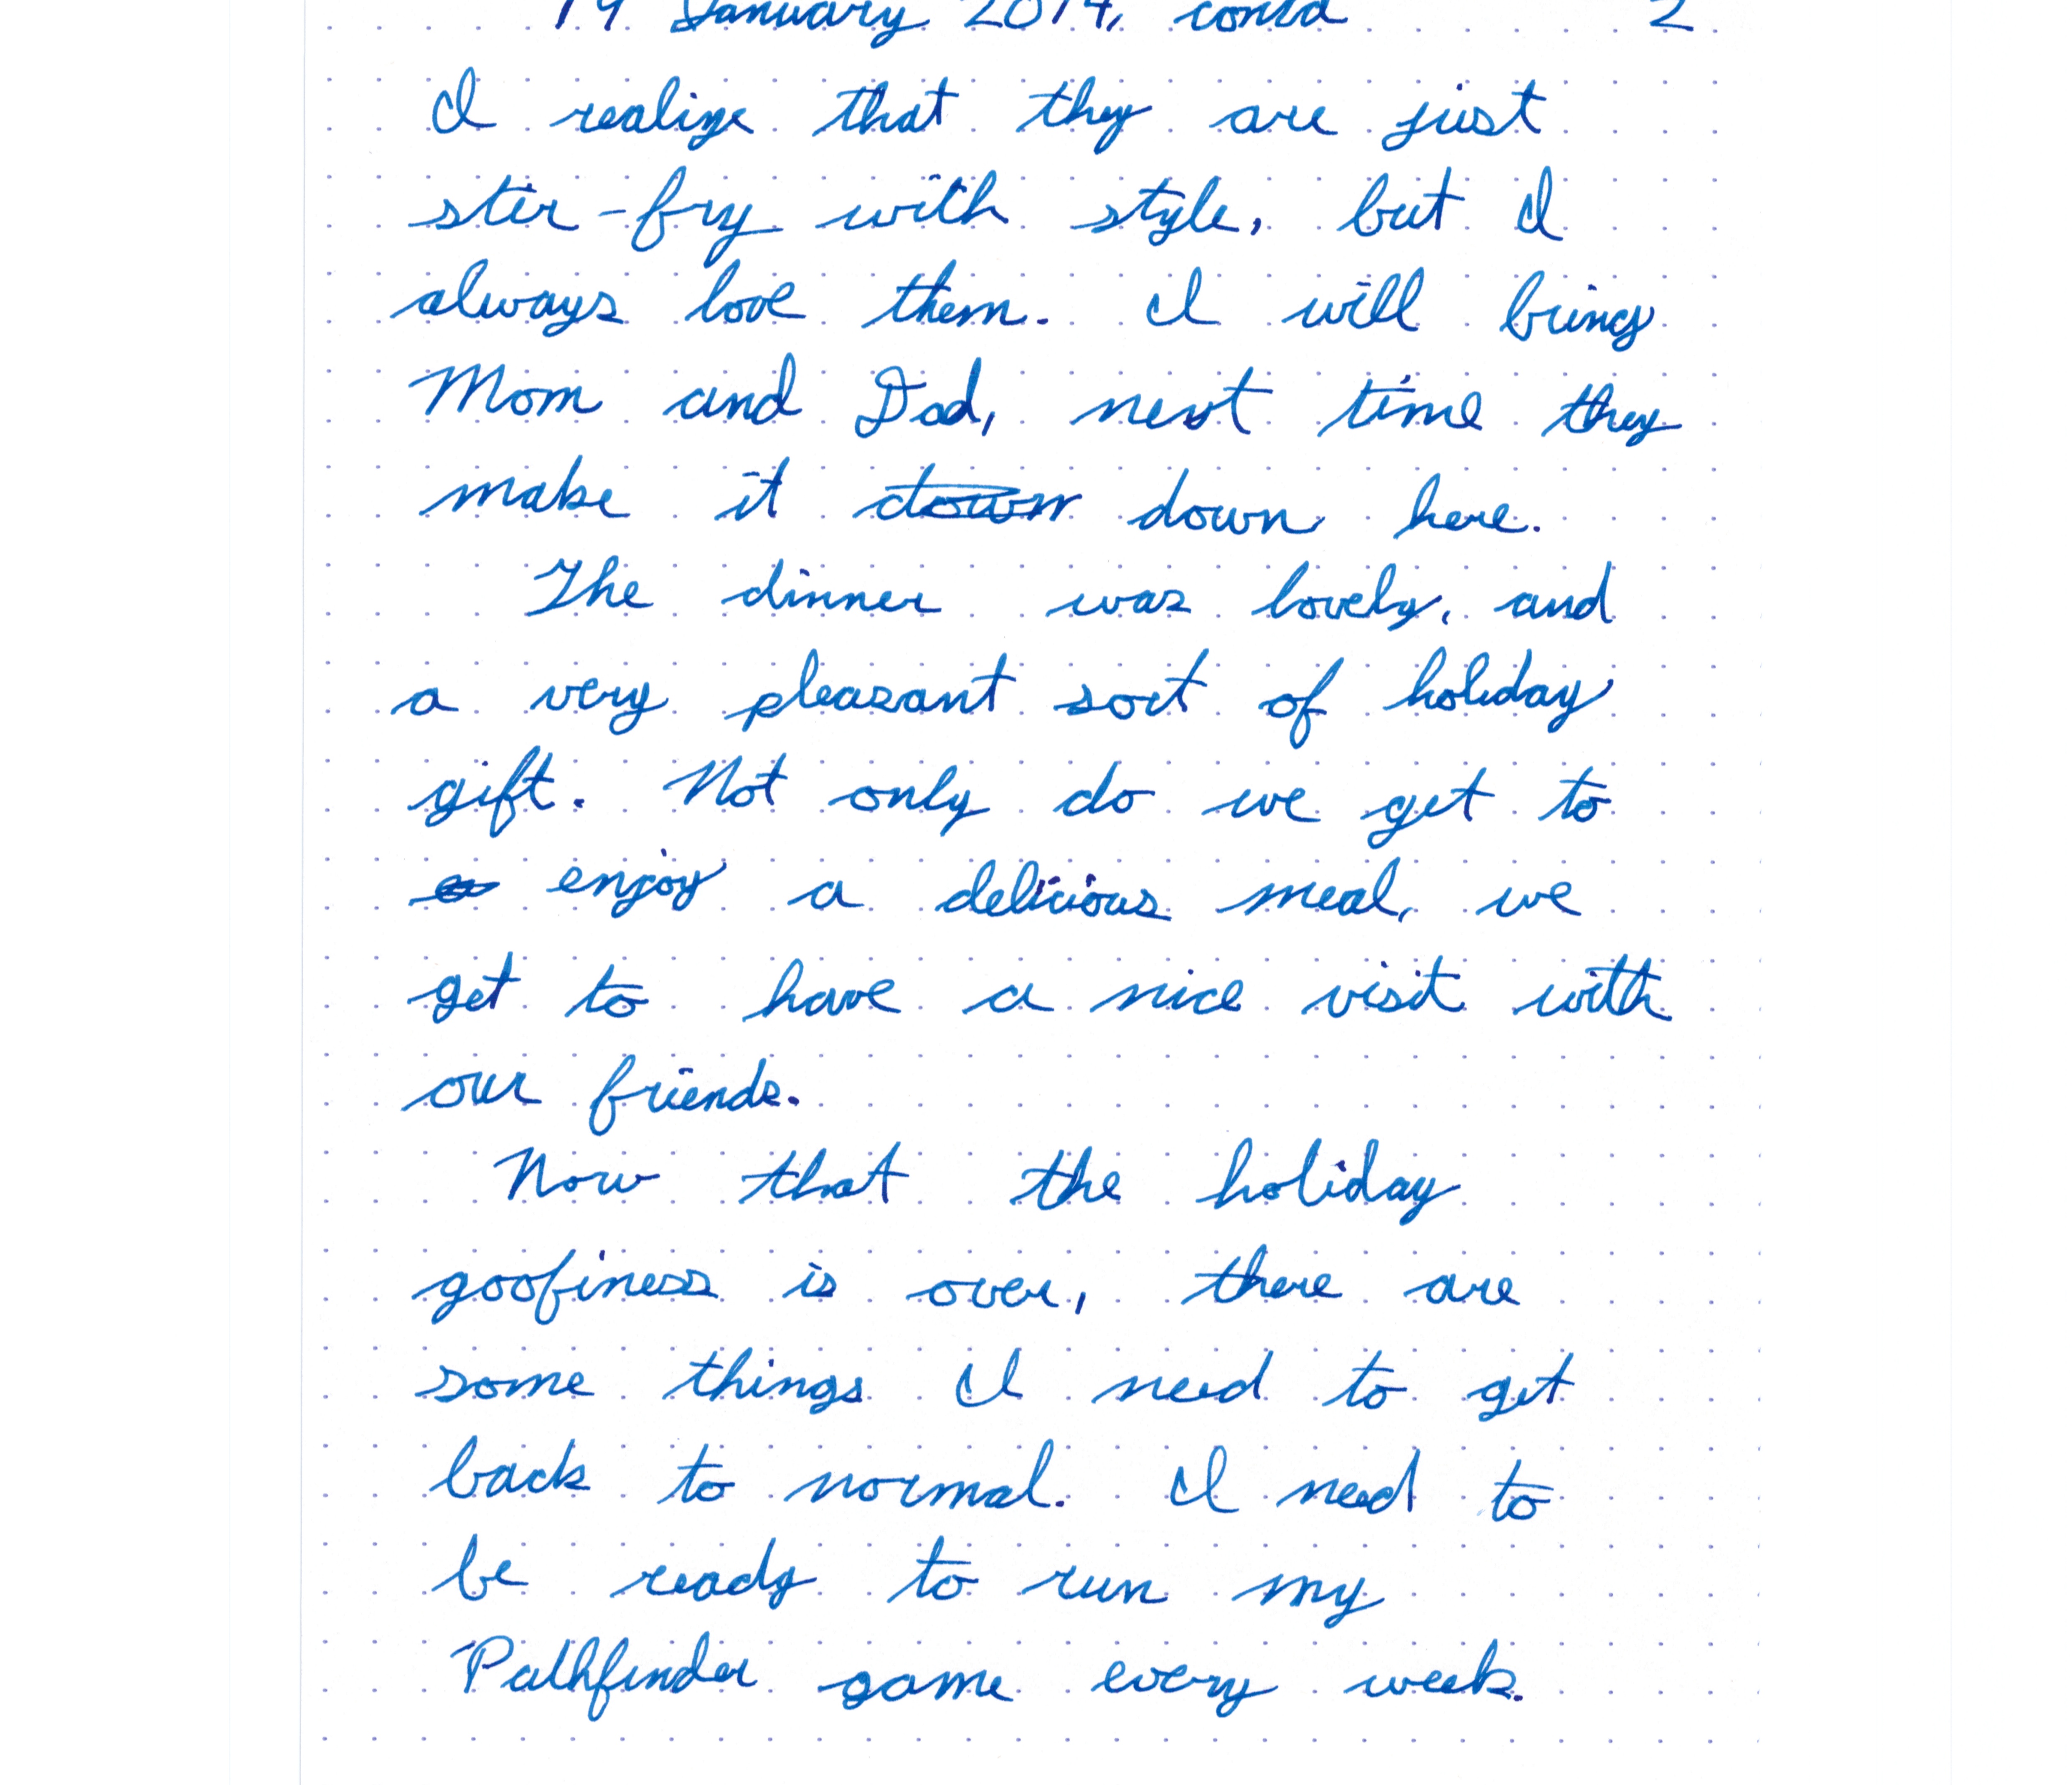 19 January 2014, contd 2
I realize that they are just
stir-fry with style, but I
always love them. I will bring
Mom and Dad, next time they
make it down down here.
The dinner was lovely, and
a very pleasant sort of holiday
gift. Not only do we get to
enjoy a delicious meal, we
get to have a nice visit with
our friends.
Now that the holiday
goofiness is over, there are
some things I need to get
back to normal. I need to
be ready to run my
Pathfinder game every week.